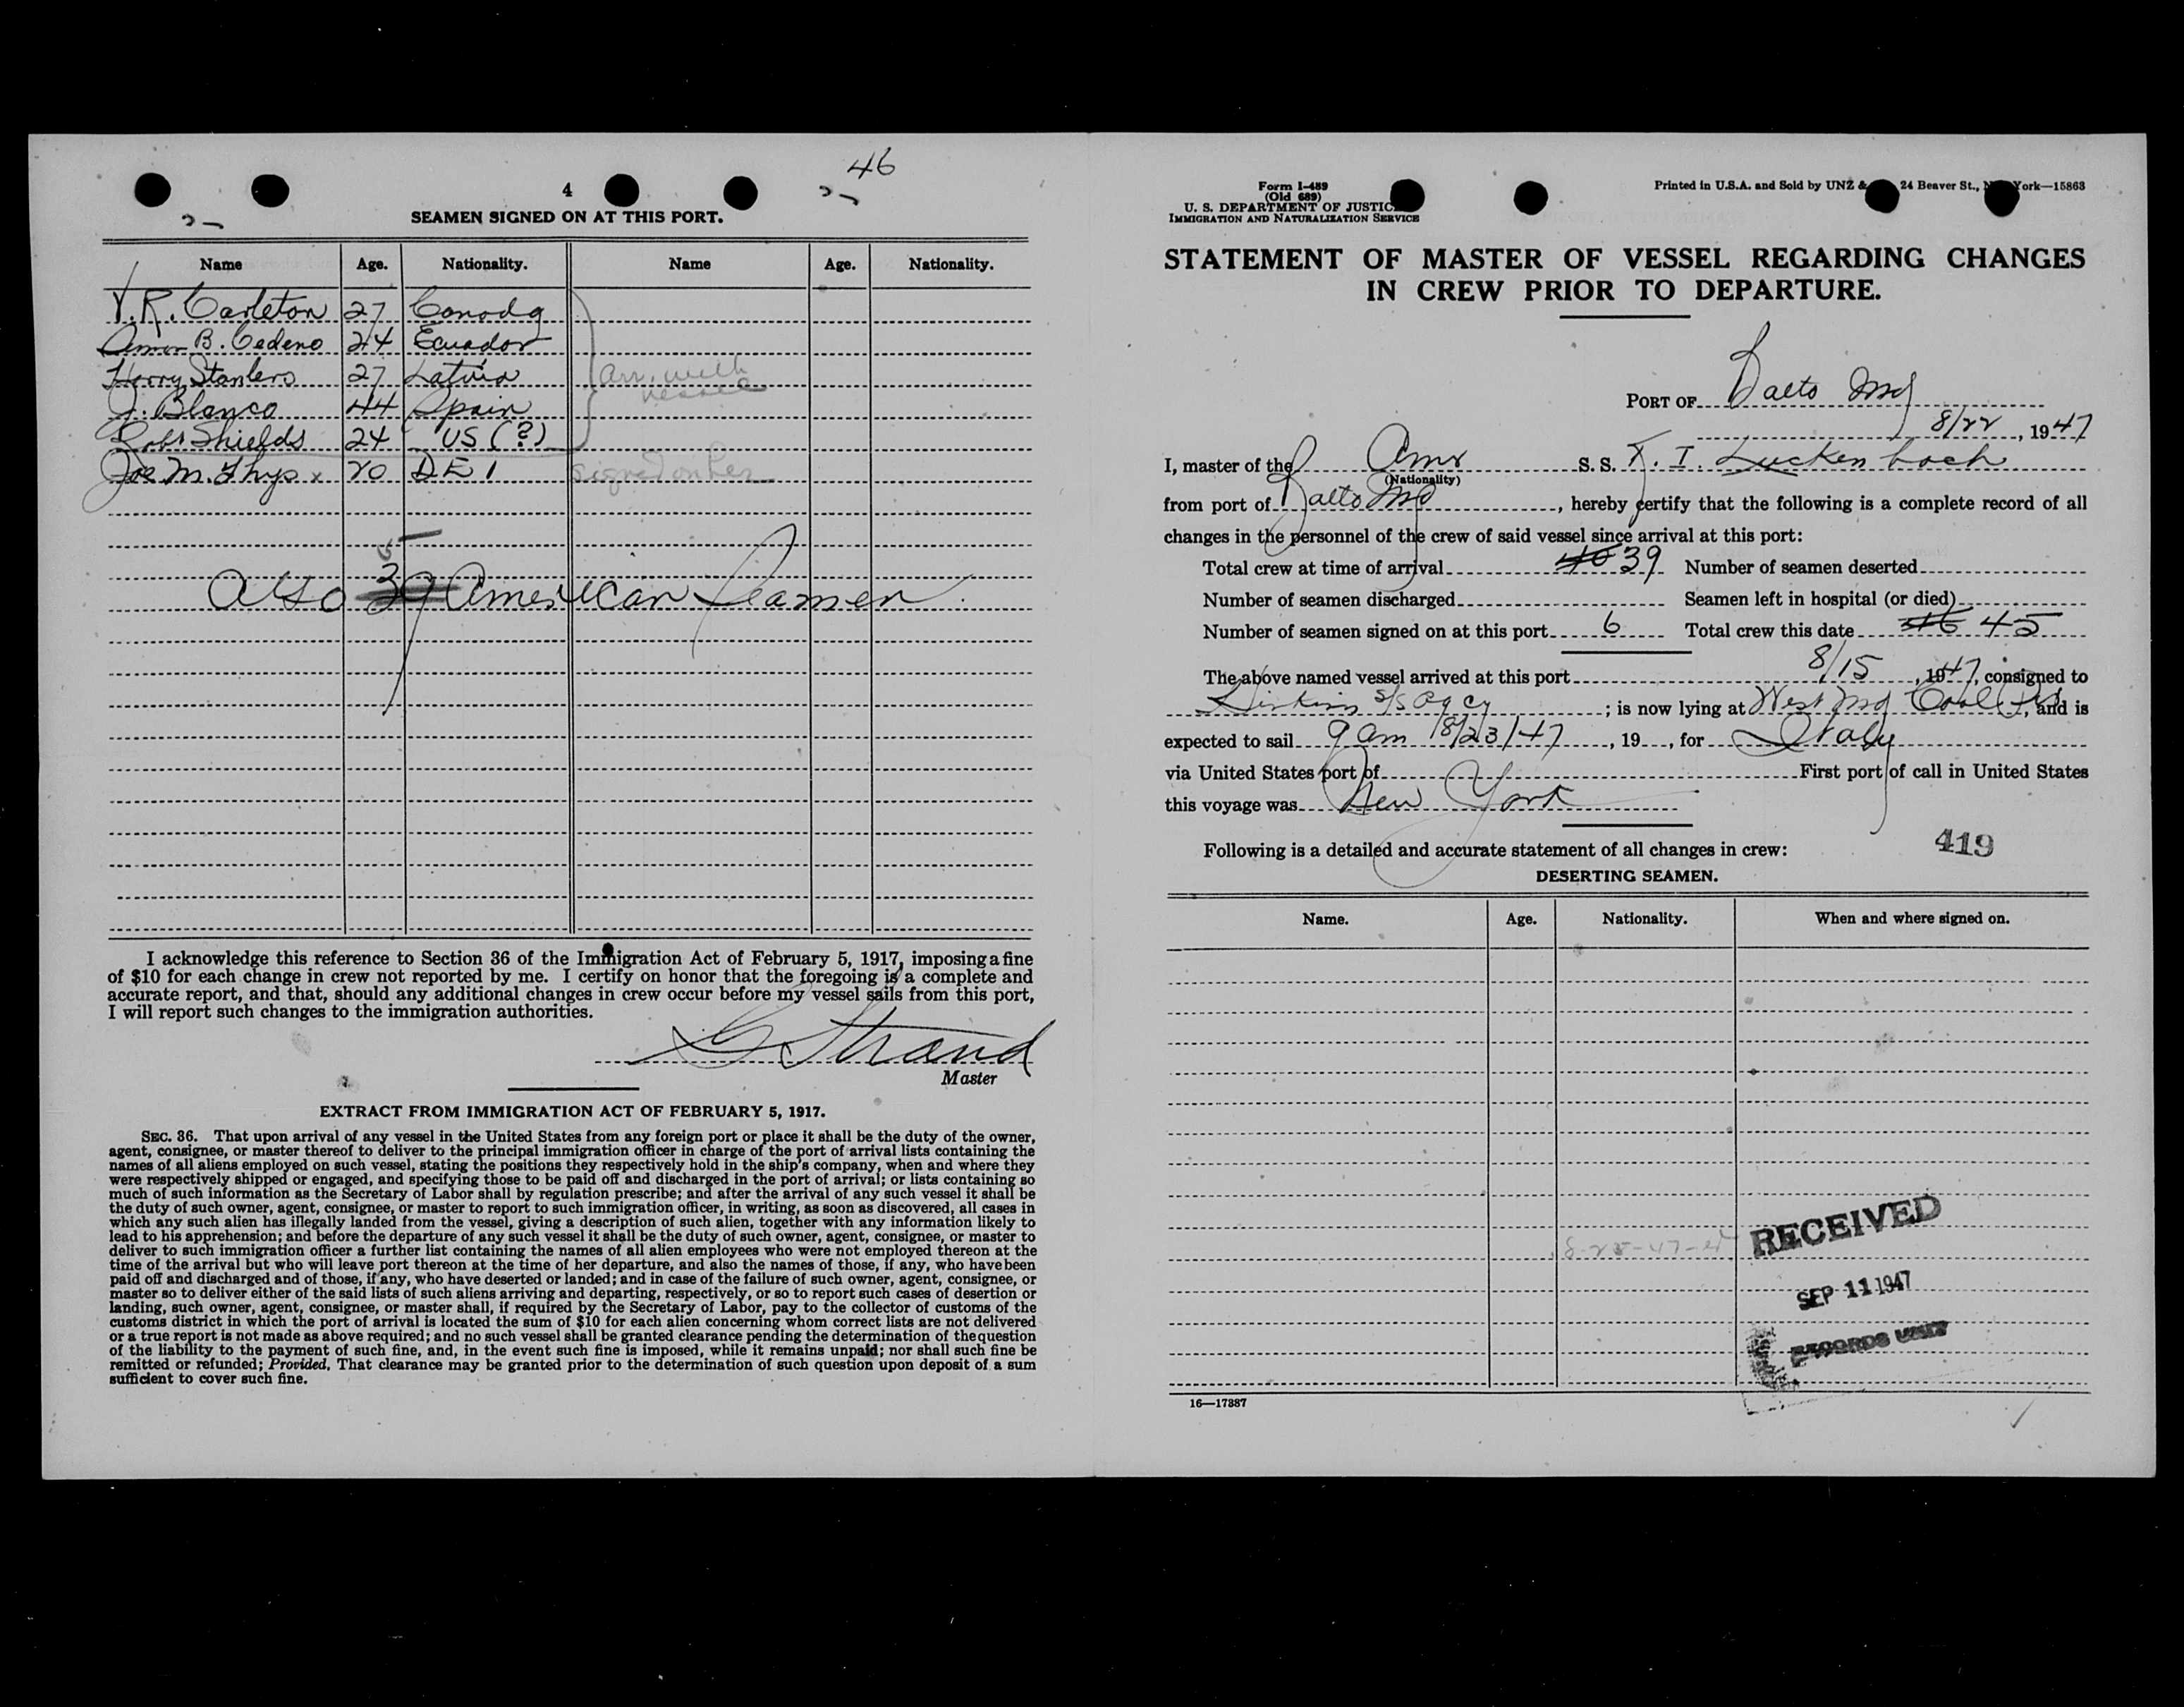 46
4
SEAMEN SIGNED ON AT THIS PORT.
Name Age. Nationality. Name Age. Nationality.
V.R. Carleton 27 Canada
B. Cedeno 24 Ecuador
Harry Stanlers 27 Latvia
J. Blanco 44 Spain
Robt Shields 24 US (?)
arr. with
vessel
Joe M. Thys x 20 DEI signed on her
Also 39 American Seamen
I acknowledge this reference to Section 36 of the Immigration Act of February 5, 1917, imposing a fine
of $10 for each change in crew not reported by me. I certify on honor that the foregoing is a complete and
accurate report, and that, should any additional changes in crew occur before my vessel sails from this port,
I will report such changes to the immigration authorities.
G Strand
Master
EXTRACT FROM IMMIGRATION ACT OF FEBRUARY 5, 1917.
SEC. 36. That upon arrival of any vessel in the United States from any foreign port or place it shall be the duty of the owner,
agent, consignee, or master thereof to deliver to the principal immigration officer in charge of the port of arrival lists containing the
names of all aliens employed on such vessel, stating the positions they respectively hold in the ship's company, when and where they
were respectively shipped or engaged, and specifying those to be paid off and discharged in the port of arrival; or lists containing so
much of such information as the Secretary of Labor shall by regulation prescribe; and after the arrival of any such vessel it shall be
the duty of such owner, agent, consignee, or master to report to such immigration officer, in writing, as soon as discovered, all cases in
which any such alien has illegally landed from the vessel, giving a description of such alien, together with any information likely to
lead to his apprehension; and before the departure of any such vessel it shall be the duty of such owner, agent, consignee, or master to
deliver to such immigration officer a further list containing the names of all alien employees who were not employed thereon at the
time of the arrival but who will leave port thereon at the time of her departure, and also the names of those, if any, who have been
paid off and discharged and of those, if any, who have deserted or landed; and in case of the failure of such owner, agent, consignee, or
master so to deliver either of the said lists of such aliens arriving and departing, respectively, or so to report such cases of desertion or
landing, such owner, agent, consignee, or master shall, if required by the Secretary of Labor, pay to the collector of customs of the
customs district in which the port of arrival is located the sum of $10 for each alien concerning whom correct lists are not delivered
or a true report is not made as above required; and no such vessel shall be granted clearance pending the determination of the question
of the liability to the payment of such fine, and, in the event such fine is imposed, while it remains unpaid; nor shall such fine be
remitted or refunded; Provided, That clearance may be granted prior to the determination of such question upon deposit of a sum
sufficient to cover such fine.
Form I-489
(Old 689)
U. S. DEPARTMENT OF JUSTICE
IMMIGRATION AND NATURALIZATION SERVICE
Printed in U.S.A. and Sold by UNZ & 24 Beaver St., New York—15863
STATEMENT OF MASTER OF VESSEL REGARDING CHANGES
IN CREW PRIOR TO DEPARTURE.
PORT OF Balto Md
8/22, 1947
I, master of the Amr S. S. F. I. Luckenbach
(Nationality)
from port of Balto Md, hereby certify that the following is a complete record of all
changes in the personnel of the crew of said vessel since arrival at this port:
Total crew at time of arrival 40 39 Number of seamen deserted
Number of seamen discharged Seamen left in hospital (or died)
Number of seamen signed on at this port 6 Total crew this date 46 45
The above named vessel arrived at this port 8/15, 1947, consigned to
S/S Agcy; is now lying at West Md Coal Pr, and is
expected to sail 9 am 8/23/47, 19, for Italy
via United States port of First port of call in United States
this voyage was New York
Following is a detailed and accurate statement of all changes in crew:
419
DESERTING SEAMEN.
Name. Age. Nationality. When and where signed on.
8-25-47
RECEIVED
SEP 11 1947
RECORDS UNIT
16—17387